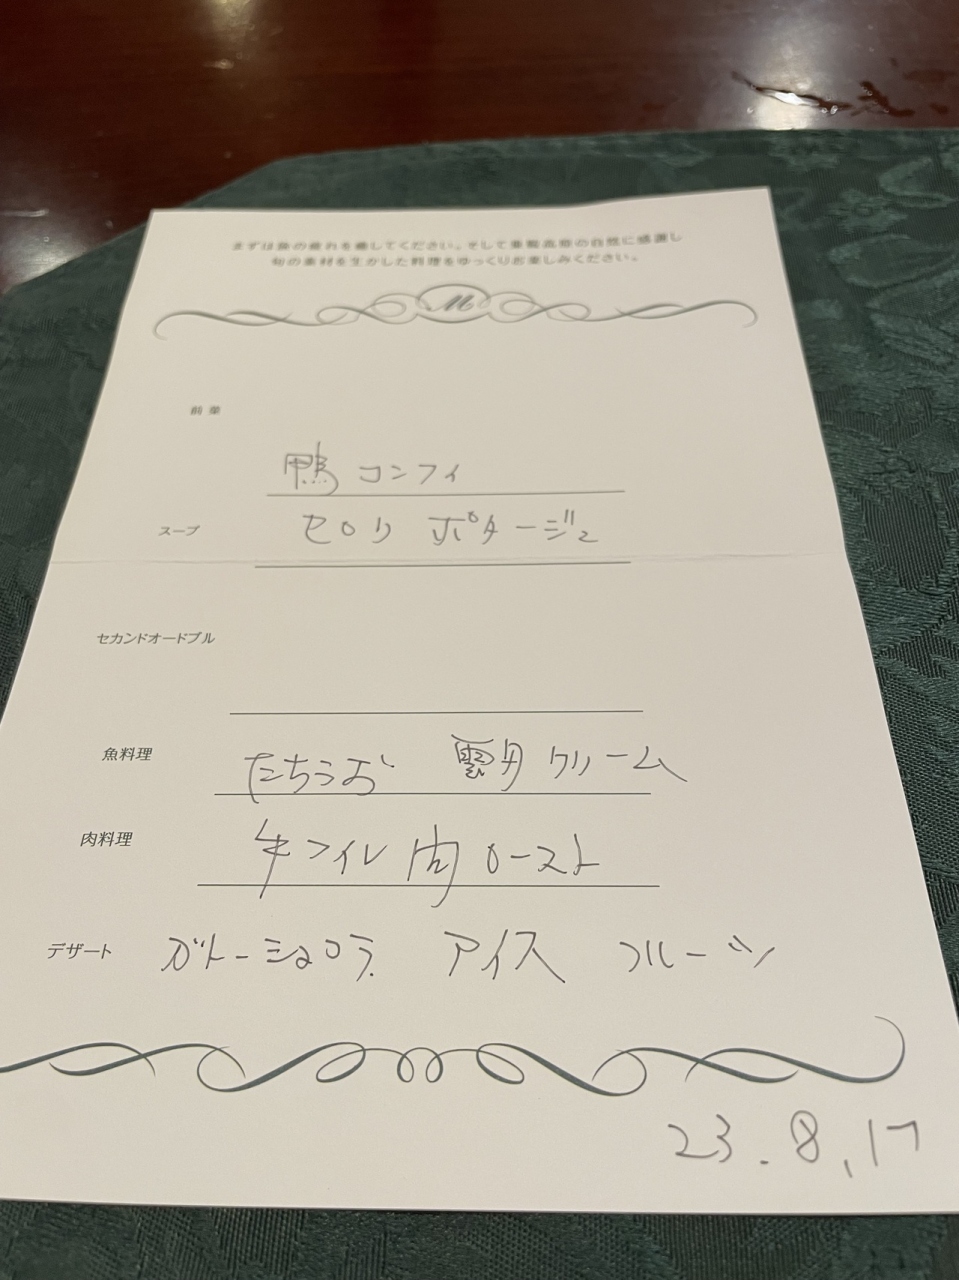 まずは旅の疲れを癒してください。そして美ヶ原高原の自然に感謝し
旬の素材を生かした料理をゆっくりお楽しみください。
M
前菜
鴨 コンフィ
スープ
セロリ ポタージュ
セカンドオードブル
魚料理
たちうお 雲丹 クリーム
肉料理
牛フィレ肉 ロースト
デザート
ガトーショコラ アイス フルーツ
23.8.17